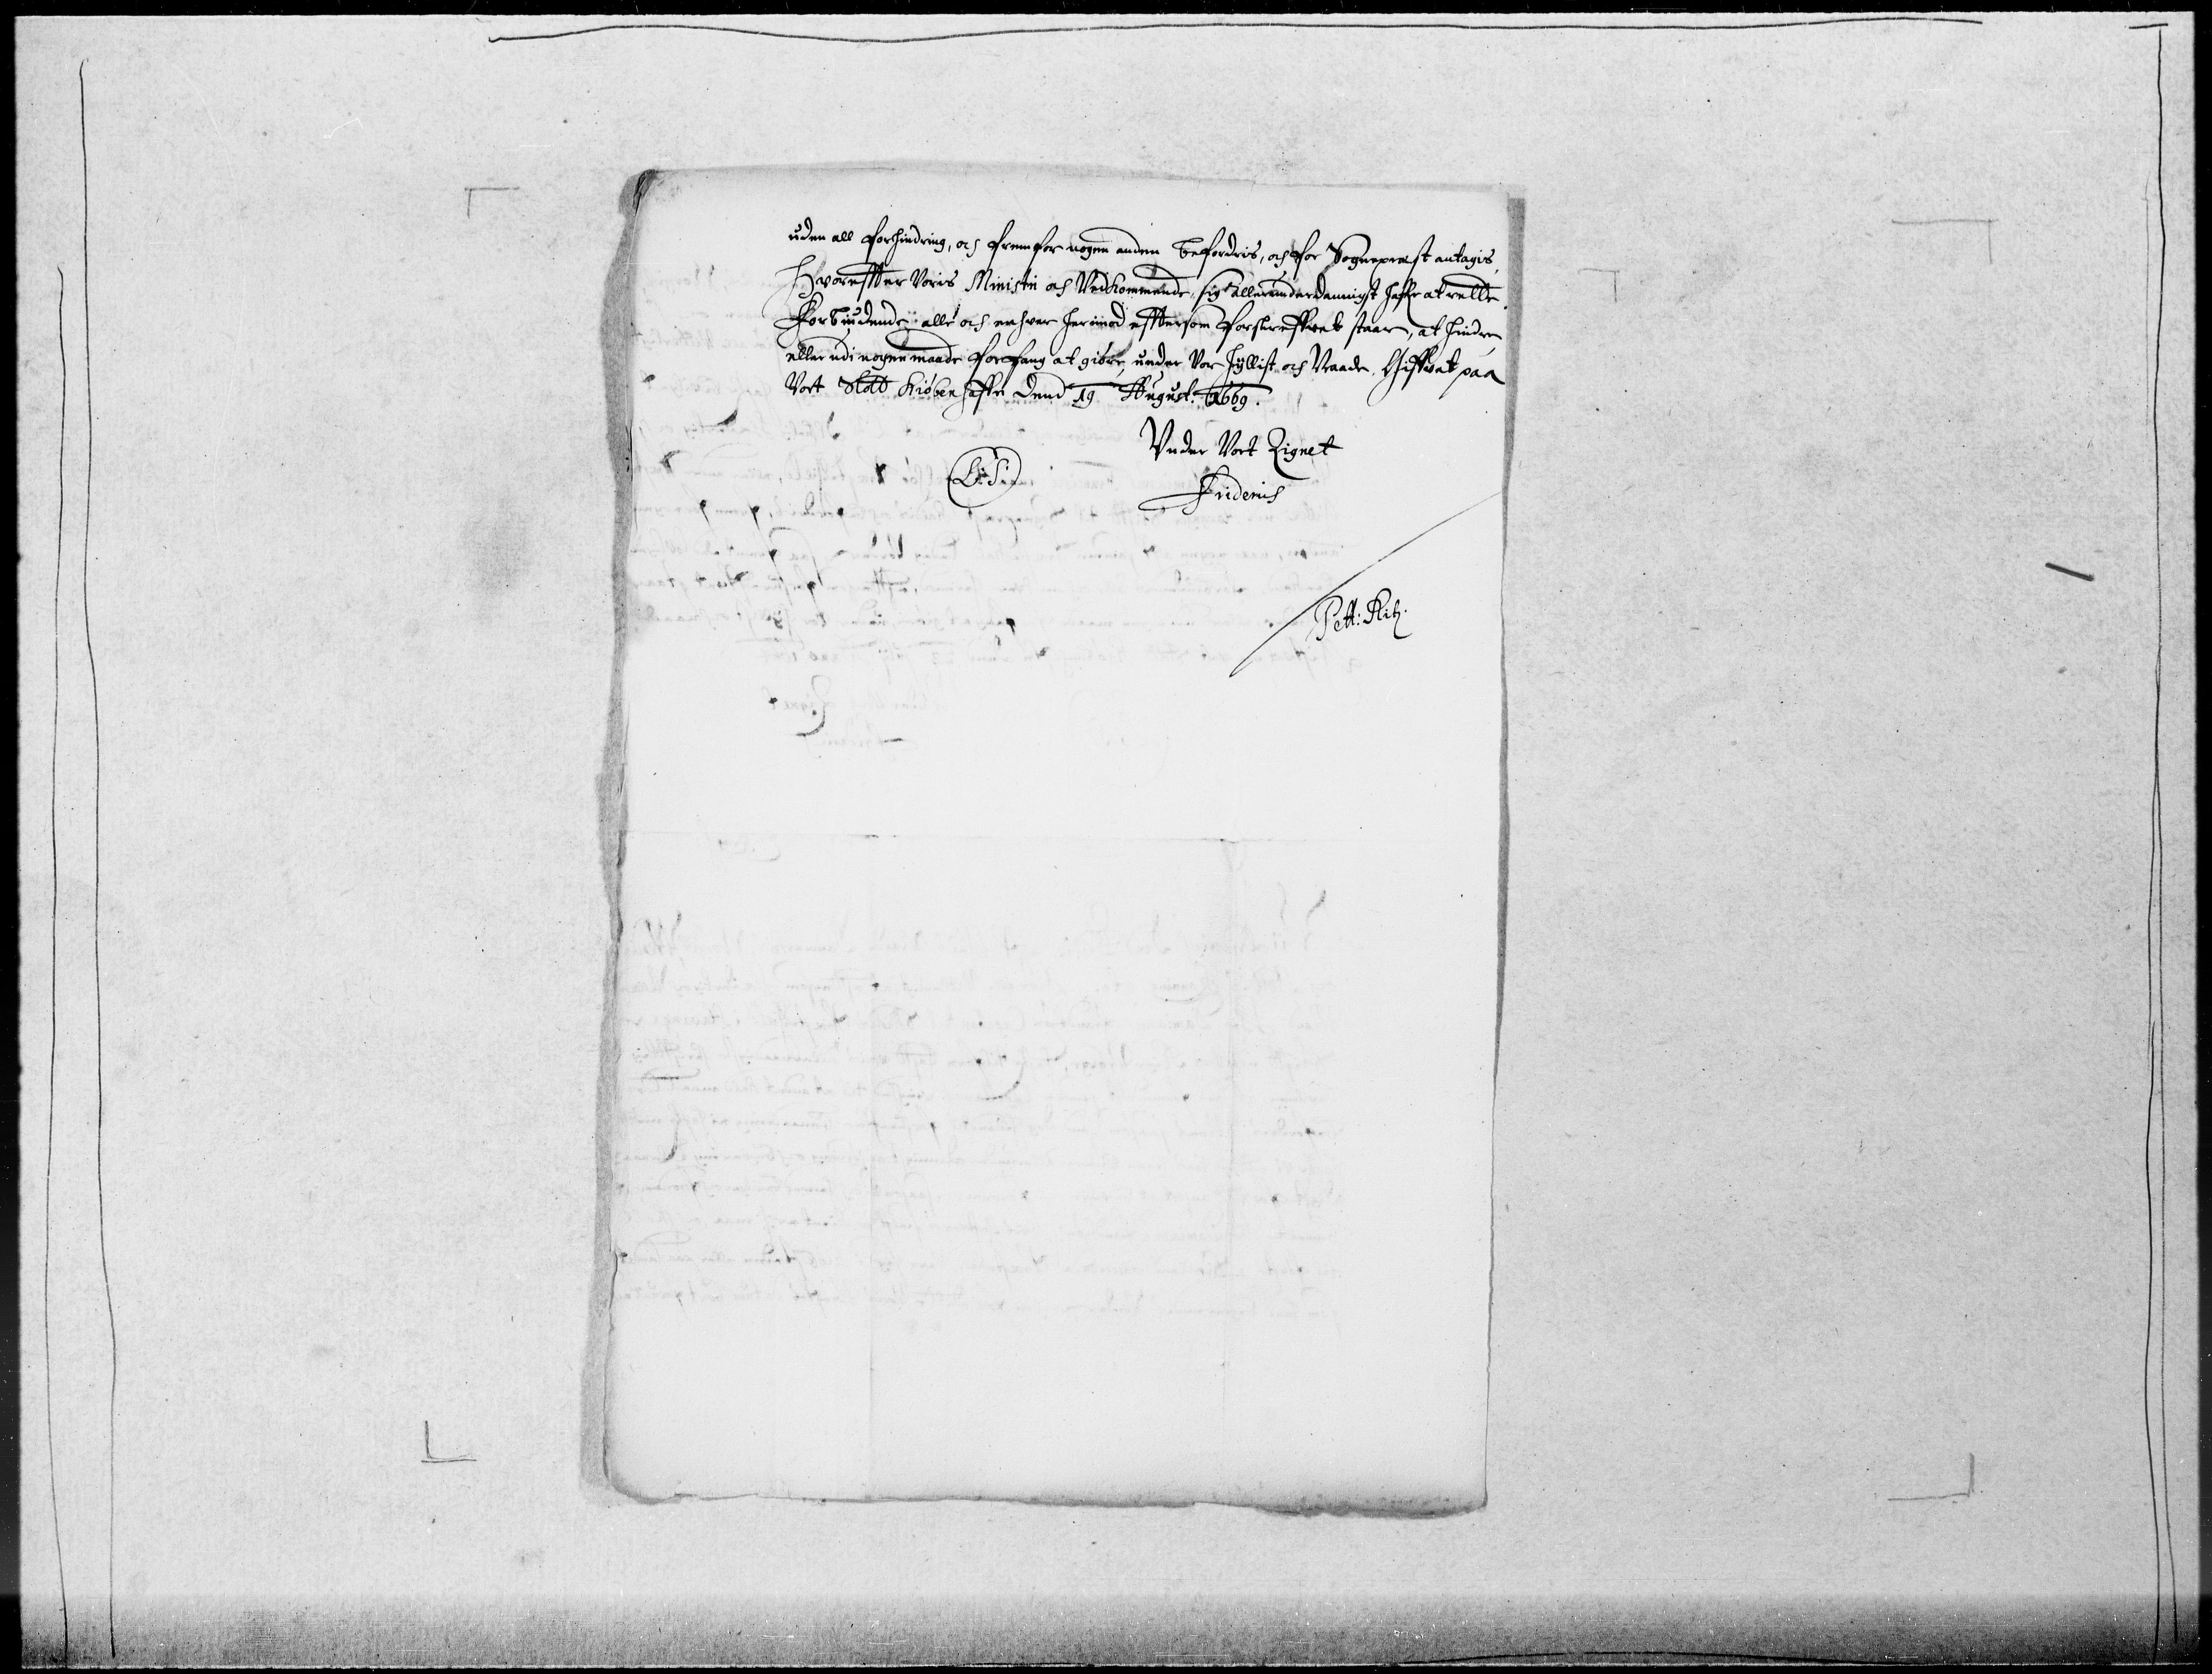 uden all forhindring, och fremfor nogen anden befordris, och for Sognepræst antagis,
Hvoreffter Voris Ministri och Vedkommende, sig allerunderdannigst haffve at rette
Forbiudendis alle och enhver herimod efftersom forskreffvet staar, at hindre,
eller udi nogen maade forfang at giöre, under Vor hyllist och Naade. Giffvet paa
Vort Slott Kiöbenhaffn dend 19 August: 1669.
Under Vort Zignet
L: S:
Friderich